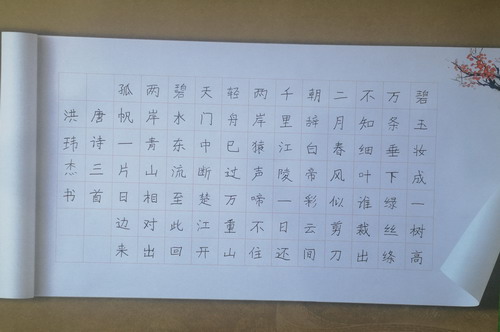 碧玉妆成一树高
万条垂下绿丝绦
不知细叶谁裁出
二月春风似剪刀
朝辞白帝彩云间
千里江陵一日还
两岸猿声啼不住
轻舟已过万重山
天门中断楚江开
碧水东流至此回
两岸青山相对出
孤帆一片日边来
唐诗三首
洪玮杰书